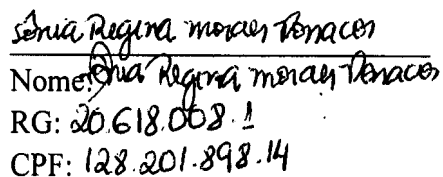 Sônia Regina moraes Panaces
Nome: Sônia Regina moraes Panaces
RG: 20.618.008.1
CPF: 128.201.898.14